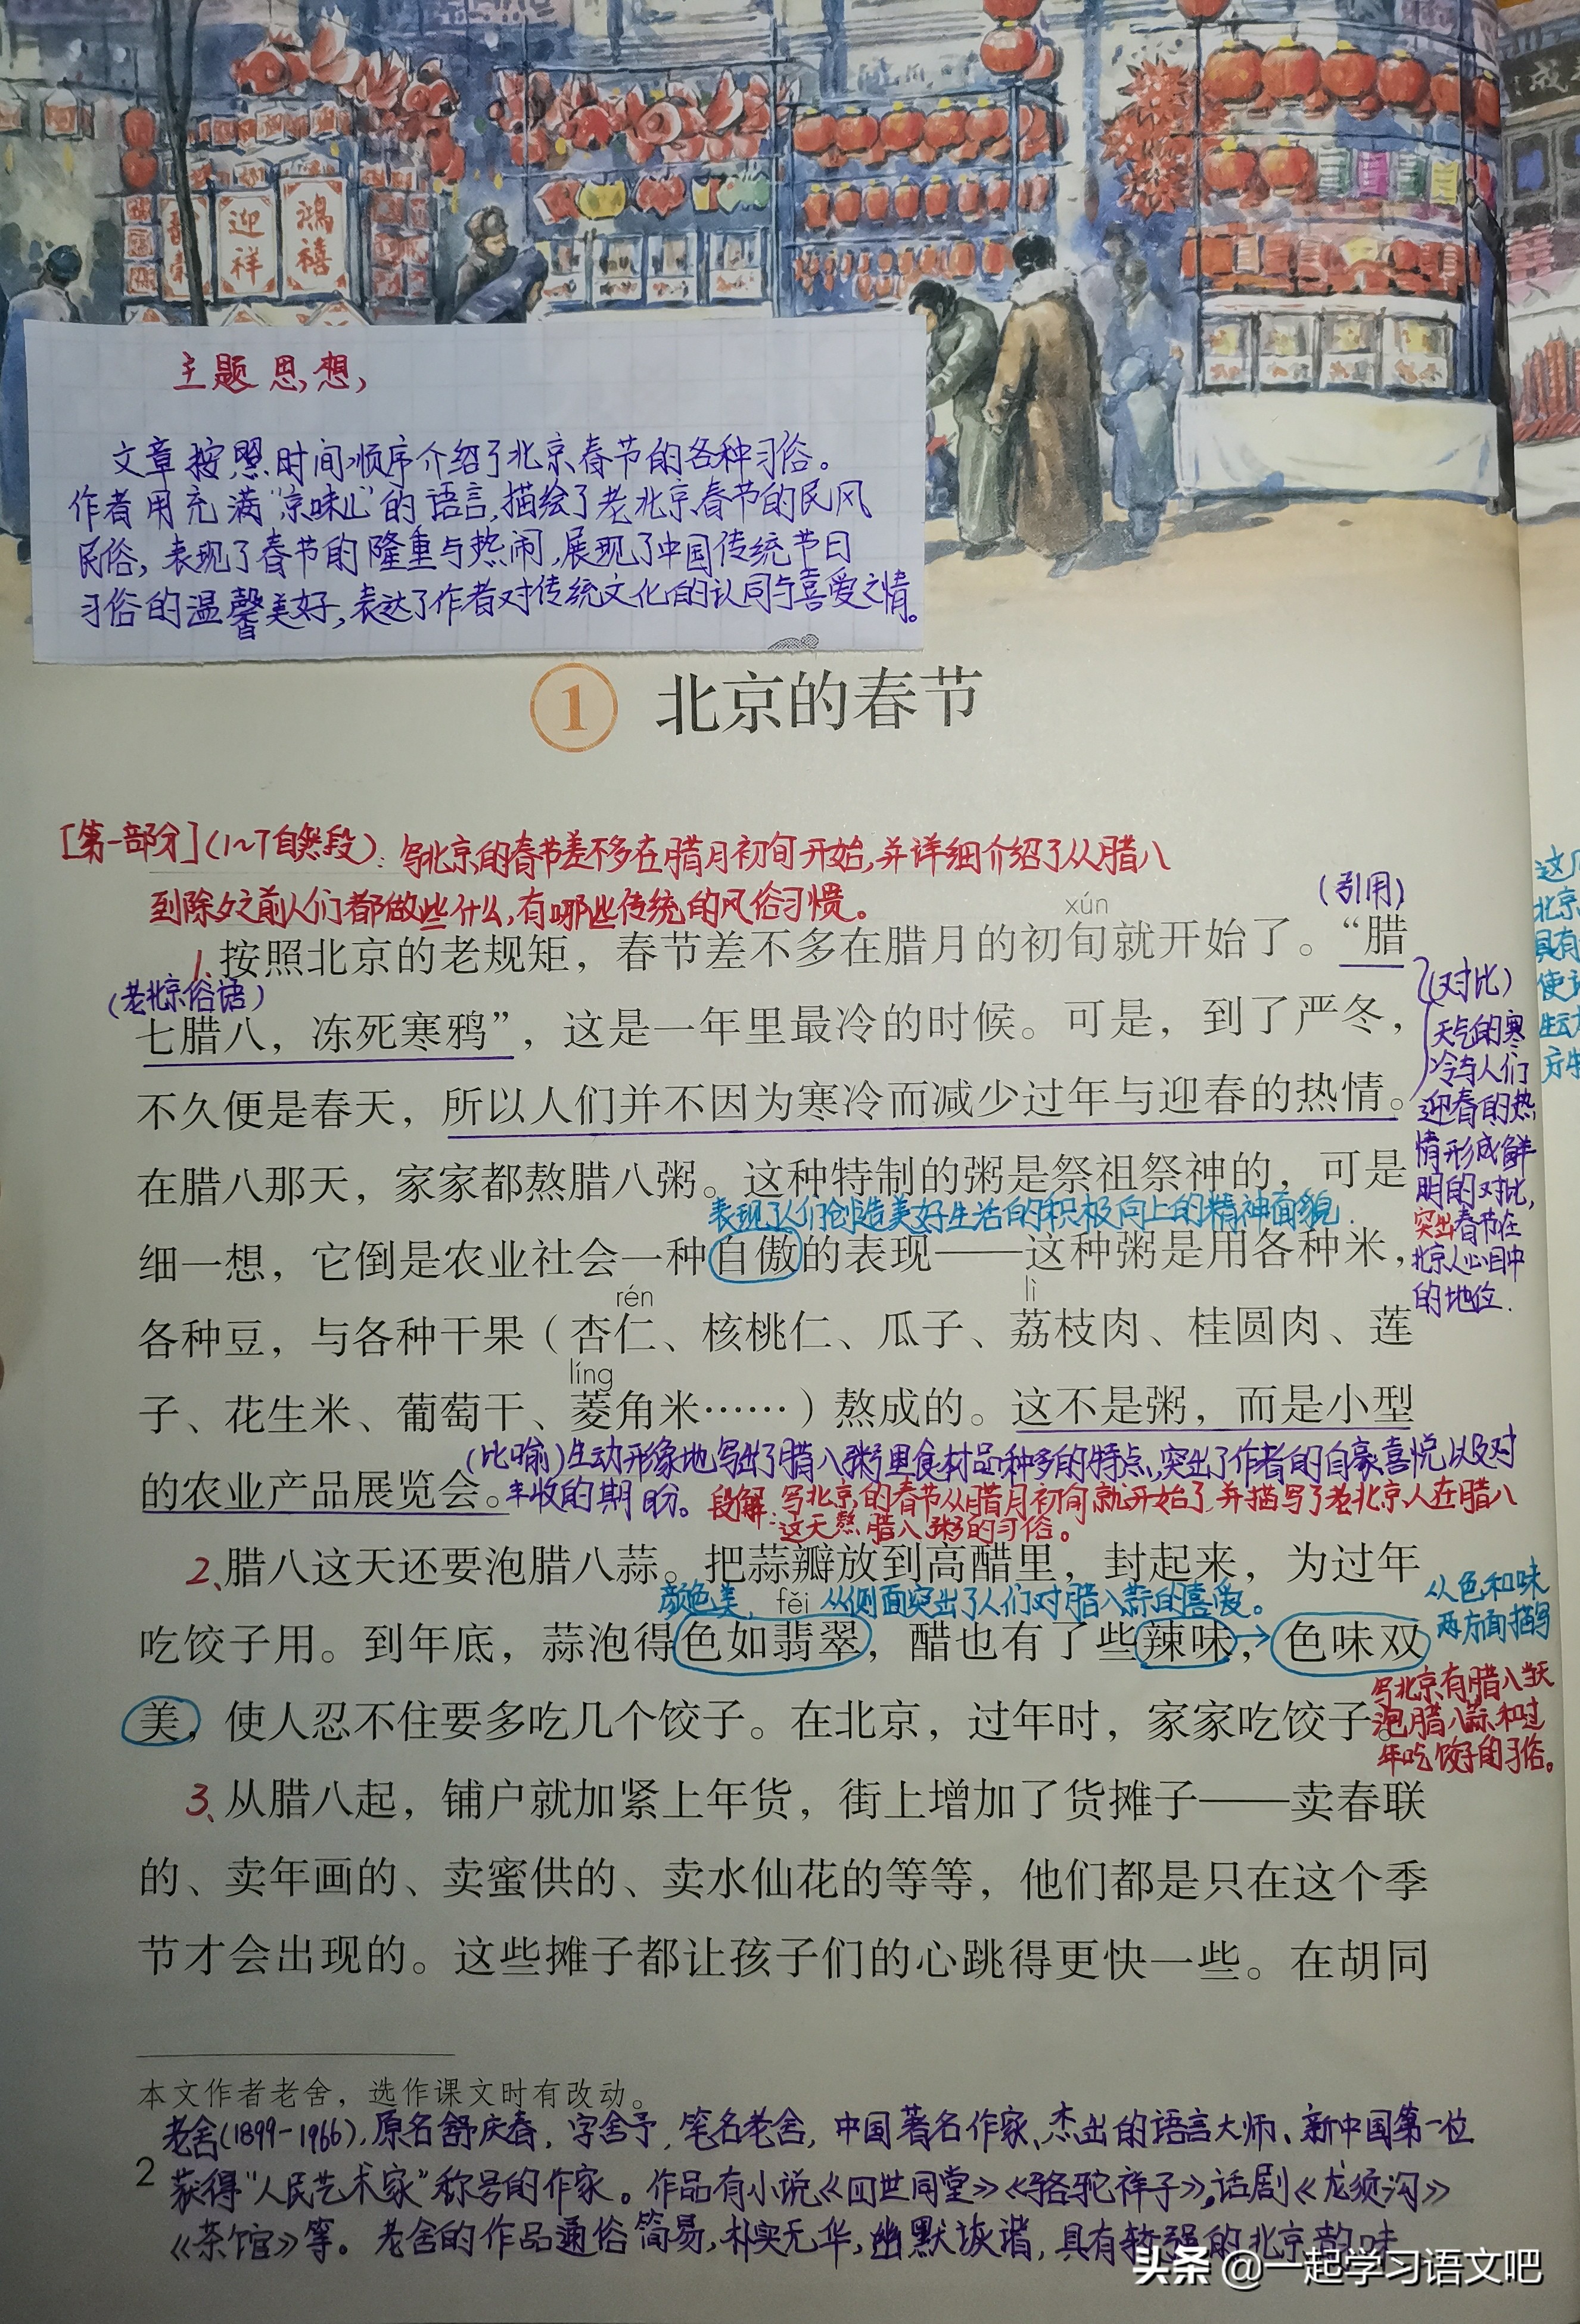 迎祥
鴻禧
主题思想，
文章按照时间顺序介绍了北京春节的各种习俗。
作者用充满“京味儿”的语言，描绘了老北京春节的民风
民俗，表现了春节的隆重与热闹，展现了中国传统节日
习俗的温馨美好，表达了作者对传统文化的认同与喜爱之情。
1 北京的春节
[第一部分]（1~7自然段）：写北京的春节差不多在腊月初旬开始，并详细介绍了从腊八
到除夕之前人们都做些什么，有哪些传统的风俗习惯。
（引用）
xún
1、按照北京的老规矩，春节差不多在腊月的初旬就开始了。“腊
（老北京俗语）
七腊八，冻死寒鸦”，这是一年里最冷的时候。可是，到了严冬，
不久便是春天，所以人们并不因为寒冷而减少过年与迎春的热情。
（对比）
天气的寒
冷与人们
迎春的热
情形成鲜
明的对比，
突出春节在
北京人心目中
的地位.
在腊八那天，家家都熬腊八粥。这种特制的粥是祭祖祭神的，可是
表现了人们创造美好生活的积极向上的精神面貌.
细一想，它倒是农业社会一种自傲的表现——这种粥是用各种米，
rén lì
各种豆，与各种干果（杏仁、核桃仁、瓜子、荔枝肉、桂圆肉、莲
líng
子、花生米、葡萄干、菱角米……）熬成的。这不是粥，而是小型
（比喻）生动形象地写出了腊八粥里食材品种多的特点，突出了作者的自豪喜悦以及对
的农业产品展览会。丰收的期盼。
段解：写北京的春节从腊月初旬就开始了，并描写了老北京人在腊八
这天熬腊八粥的习俗。
2、腊八这天还要泡腊八蒜。把蒜瓣放到高醋里，封起来，为过年
颜色美， fěi 从侧面突出了人们对腊八蒜的喜爱。
从色和味
两方面描写
吃饺子用。到年底，蒜泡得色如翡翠，醋也有了些辣味，色味双
美，使人忍不住要多吃几个饺子。在北京，过年时，家家吃饺子。
写北京有腊八当天
泡腊八蒜和过
年吃饺子的习俗。
3、从腊八起，铺户就加紧上年货，街上增加了货摊子——卖春联
的、卖年画的、卖蜜供的、卖水仙花的等等，他们都是只在这个季
节才会出现的。这些摊子都让孩子们的心跳得更快一些。在胡同
本文作者老舍，选作课文时有改动。
老舍（1899-1966），原名舒庆春，字舍予，笔名老舍，中国著名作家、杰出的语言大师、新中国第一位
获得“人民艺术家”称号的作家。作品有小说《四世同堂》《骆驼祥子》，话剧《龙须沟》
《茶馆》等。老舍的作品通俗简易，朴实无华，幽默诙谐，具有较强的北京韵味
2
头条 @一起学习语文吧